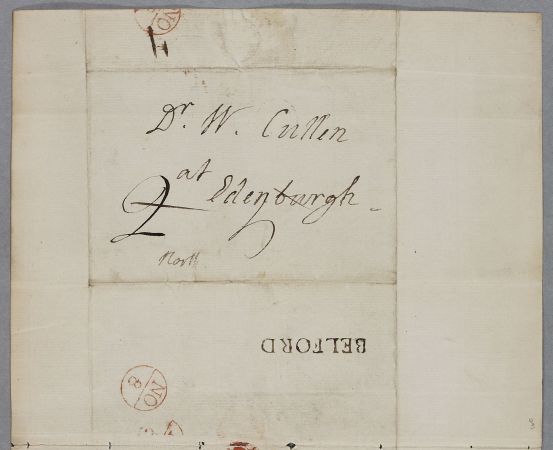 NO
Dr. W. Cullen
at
Edenburgh
2
North
BELFORD
8
NO
8